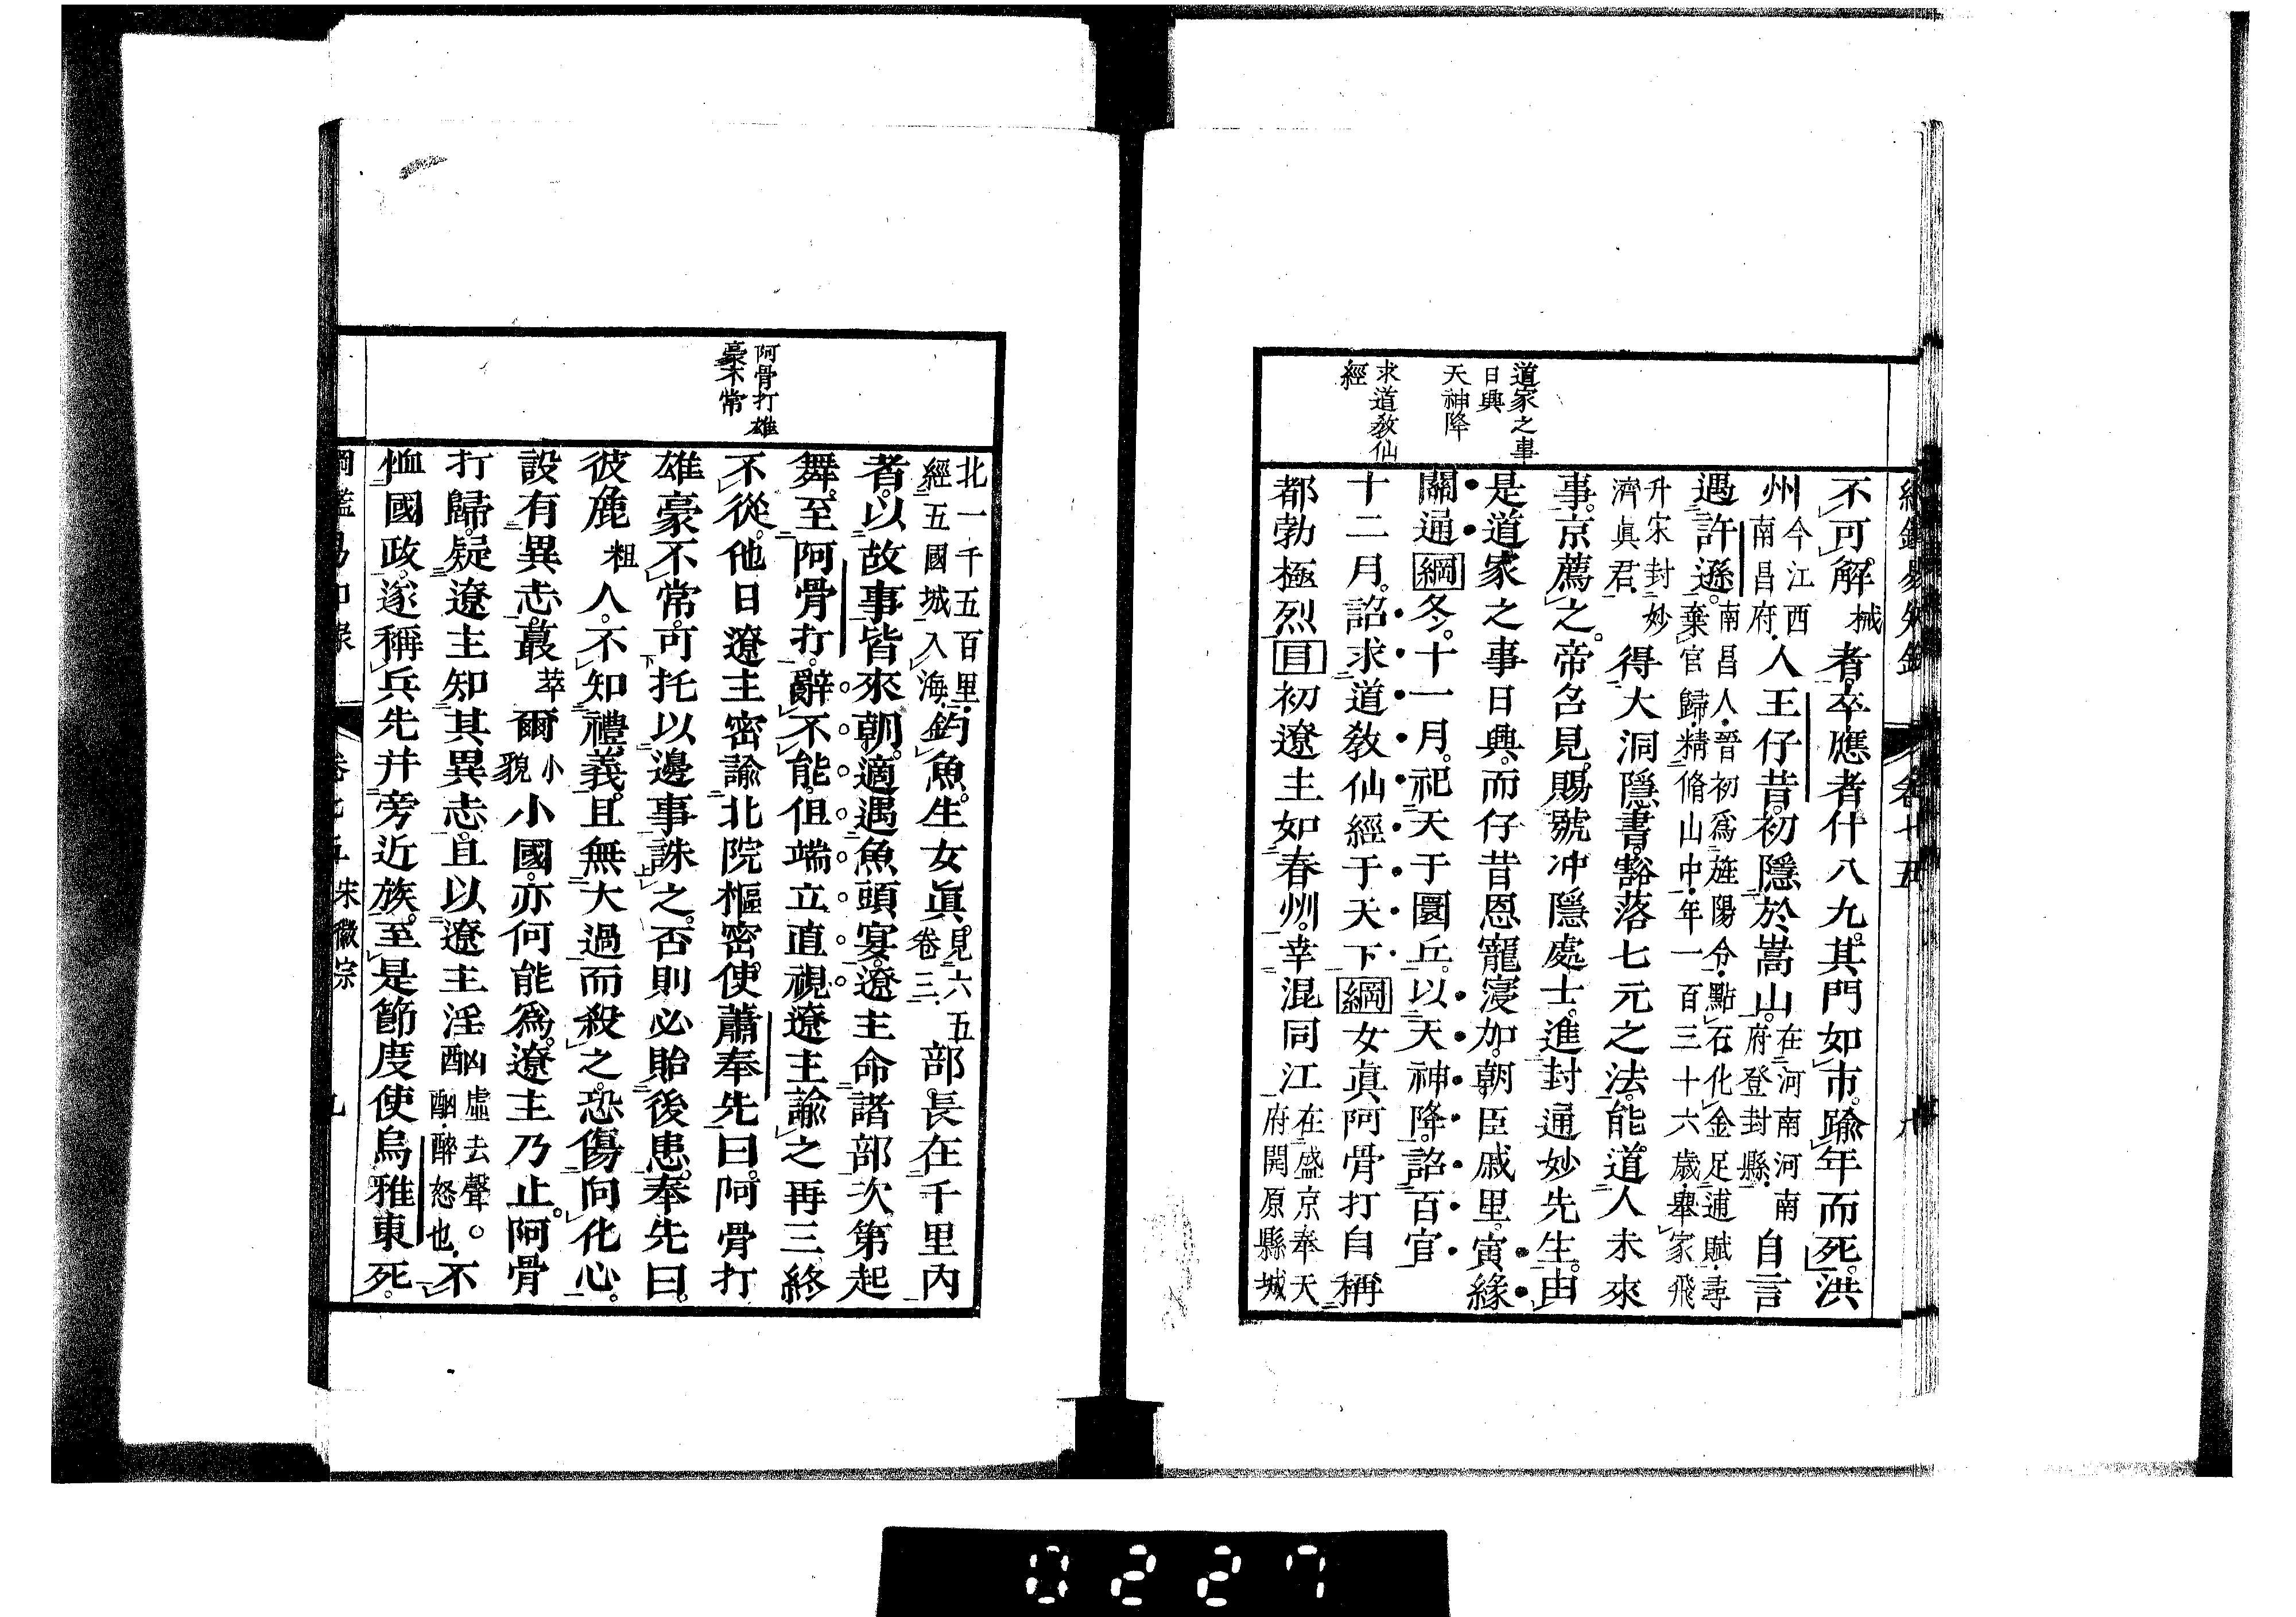 道家之事
日興
天神降
求道教仙
經
不可解械者。卒應者什八九。其門如市。踰年而死。洪
州今江西南昌府人王仔昔。初隱於嵩山。在河南河南府登封縣自言
遇許遜。南昌人晉初爲旌陽令點石化金足逋賦尋棄官歸精脩山中年一百三十六歲舉家飛
升宋封妙濟眞君得大洞隱書。豁落七元之法。能道人未來
事。京薦之。帝名見。賜號冲隱處士。進封通妙先生。由
是道家之事日興。而仔昔恩寵寖加。朝臣戚里。寅緣
關通綱冬。十一月。祀天于圜丘。以天神降。詔百官
十二月。詔求道教仙經于天下綱女眞阿骨打自稱
都勃極烈目初遼主如春州。幸混同江在盛京奉天府開原縣城
綱鑑易知錄
卷七十五
阿骨打雄
豪不常
北一千五百里經五國城入海鈞魚。生女眞。見六五卷三部。長在千里內
者。以故事皆來朝。適遇魚頭宴。遼主命諸部次第起
舞。至阿骨打。辭不能。但端立直視遼主諭之再三。終
不從。他日遼主密諭北院樞密使蕭奉先曰。阿骨打
雄豪不常。可托以邊事誅之。否則必貽後患。奉先曰。
彼麁粗人。不知禮義。且無大過而殺之。恐傷向化心。
設有異志。蕞萃爾小貌小國。亦何能爲。遼主乃止。阿骨
打歸。疑遼主知其異志。且以遼主淫酗酗虛去聲。酗醉怒也不
恤國政。遂稱兵先并旁近族。至是節度使烏雅束死。
綱鑑易知錄
卷七十五
宋徽宗
九
0227